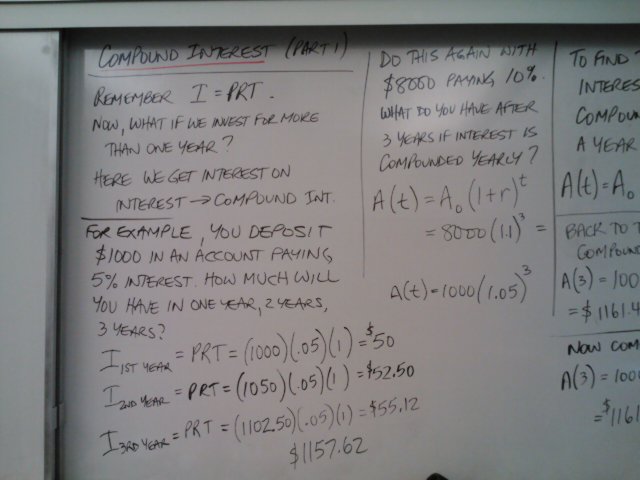 COMPOUND INTEREST (PART 1)
REMEMBER I = PRT.
NOW, WHAT IF WE INVEST FOR MORE
THAN ONE YEAR?
HERE WE GET INTEREST ON
INTEREST → COMPOUND INT.
FOR EXAMPLE, YOU DEPOSIT
$1000 IN AN ACCOUNT PAYING
5% INTEREST. HOW MUCH WILL
YOU HAVE IN ONE YEAR, 2 YEARS,
3 YEARS?
I 1ST YEAR = PRT = (1000)(.05)(1) = $50
I 2ND YEAR = PRT = (1050)(.05)(1) = $52.50
I 3RD YEAR = PRT = (1102.50)(.05)(1) = $55.12
$1157.62
DO THIS AGAIN WITH
$8000 PAYING 10%.
WHAT DO YOU HAVE AFTER
3 YEARS IF INTEREST IS
COMPOUNDED YEARLY?
A(t) = A₀(1+r)^t
= 8000(1.1)³ =
A(t) = 1000(1.05)³
TO FIND
INTERES
COMPOUN
A YEAR
A(t) = A₀
BACK TO T
COMPOUND
A(3) = 100
= $1161.4
NOW COM
A(3) = 1000
= $1161